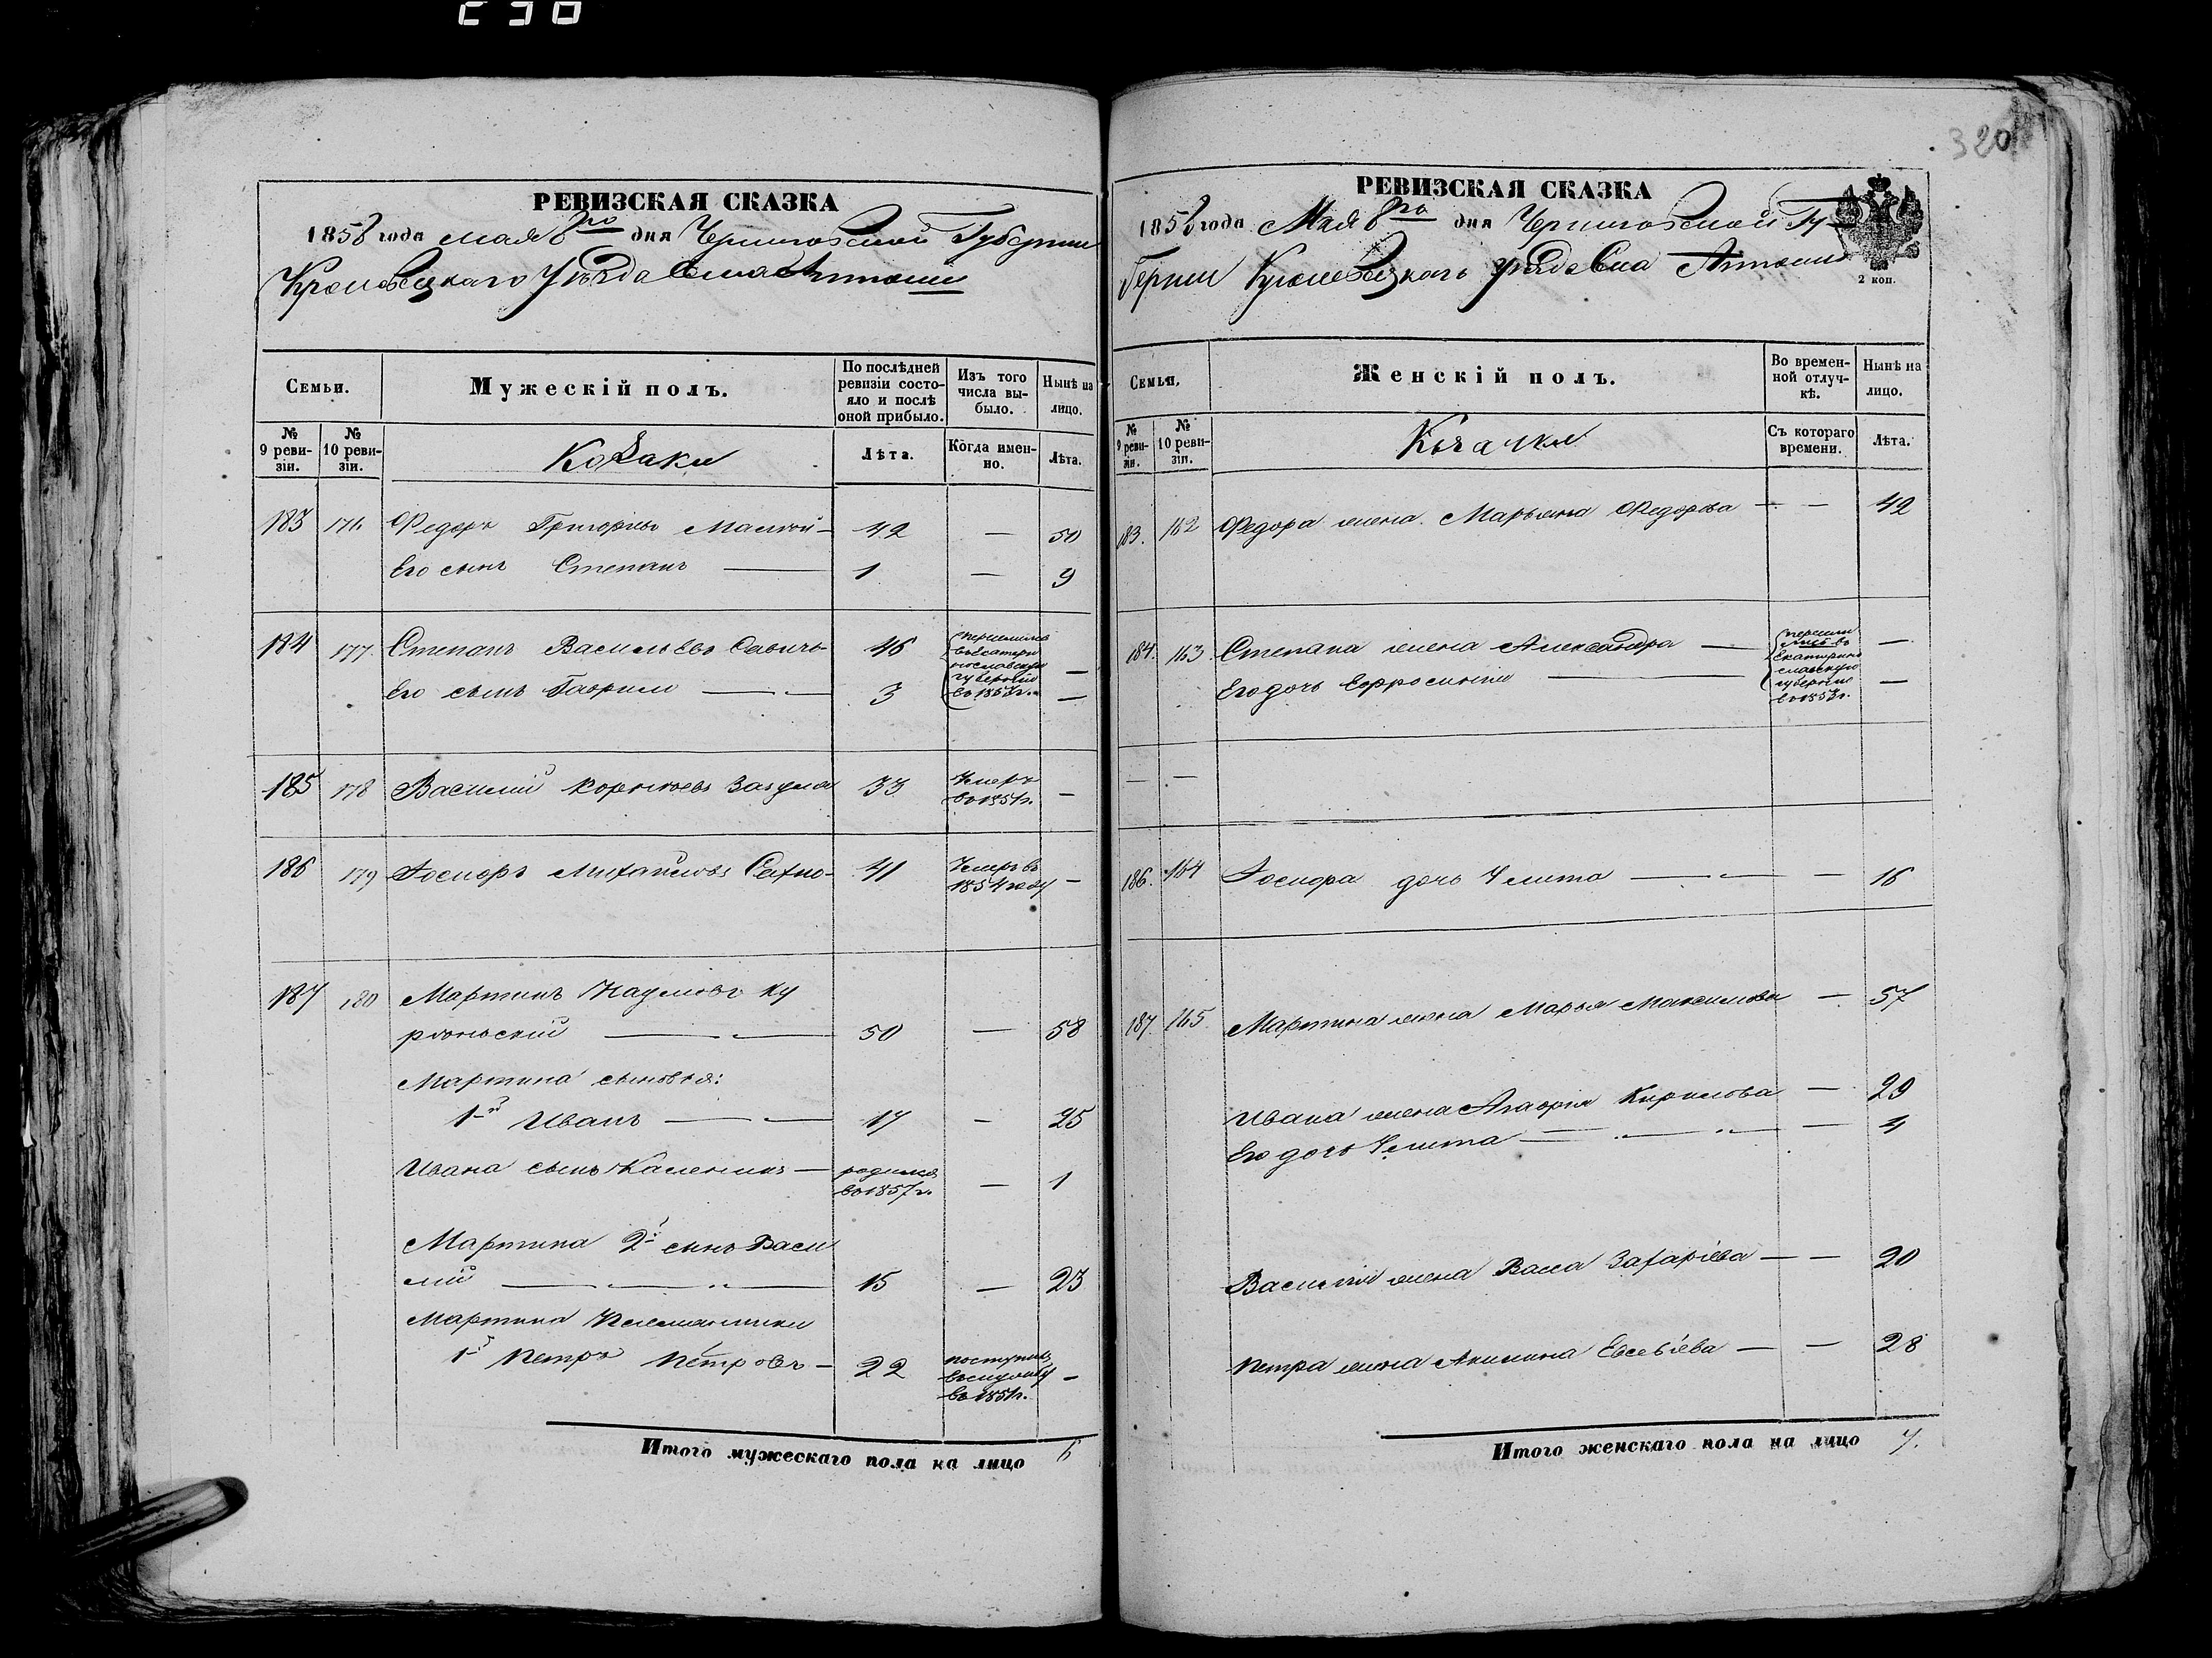 320
РЕВИЗСКАЯ СКАЗКА
1858 года мая 8го дня Черниговской Губернии
Кролевецкаго Уѣзда Села
Семьи.
Мужескій полъ.
По послѣдней ревизіи состояло и послѣ оной прибыло.
Изъ того числа выбыло.
Нынѣ на лицо.
№ 9 ревизіи.
№ 10 ревизіи.
Козаки
Лѣта.
Когда именно.
Лѣта.
183 176 Федоръ Григорьевъ — 42 — 50
Его сынъ Степанъ — 1 — 9
184 177 Степанъ Васильевъ Савичь 46 перешелъ въ Екатеринославскую губернію въ 1853 г. —
Его сынъ Гаврило — 3 —
185 178 Василий Корнѣевъ Загула 33 Умеръ въ 1851 г. —
186 179 Михайловъ Сахно 41 Умеръ въ 1854 году —
187 180 Мартинъ Наумовъ Ку
— 50 — 58
Мартина сыновья:
1й Иванъ — 17 — 25
Ивана сынъ Каленикъ — родился въ 1857 г. — 1
Мартина 2й сынъ Васи
лий — 15 — 23
Мартина Племянники
1й Петръ Петровъ — 22 поступилъ въ 1851 г. —
Итого мужескаго пола на лицо 6
РЕВИЗСКАЯ СКАЗКА
1858 года Мая 8го дня Черниговской Гу
берніи Кролевецкаго уѣзда Села
2 коп.
Семьи.
Женскій полъ.
Во временной отлучкѣ.
Нынѣ на лицо.
№ 9 ревизіи.
№ 10 ревизіи.
Козачки
Съ котораго времени.
Лѣта.
183. 162 Федора жена Марьяна Федорова — — 42
184. 163 Степана жена Александра — перешли въ Екатеринославскую губернію въ 1853 г. —
Его дочь Ефросинія — —
— —
186. 164 дочь Улита — — 16
187. 165 Мартина жена Марья Максимова — 57
Ивана жена Агафія Кирилова — 29
Его дочь Улита — — 4
Василія жена Васса Захаріева — — 20
Петра жена Акилина Евсевіева — — 28
Итого женскаго пола на лицо 7.